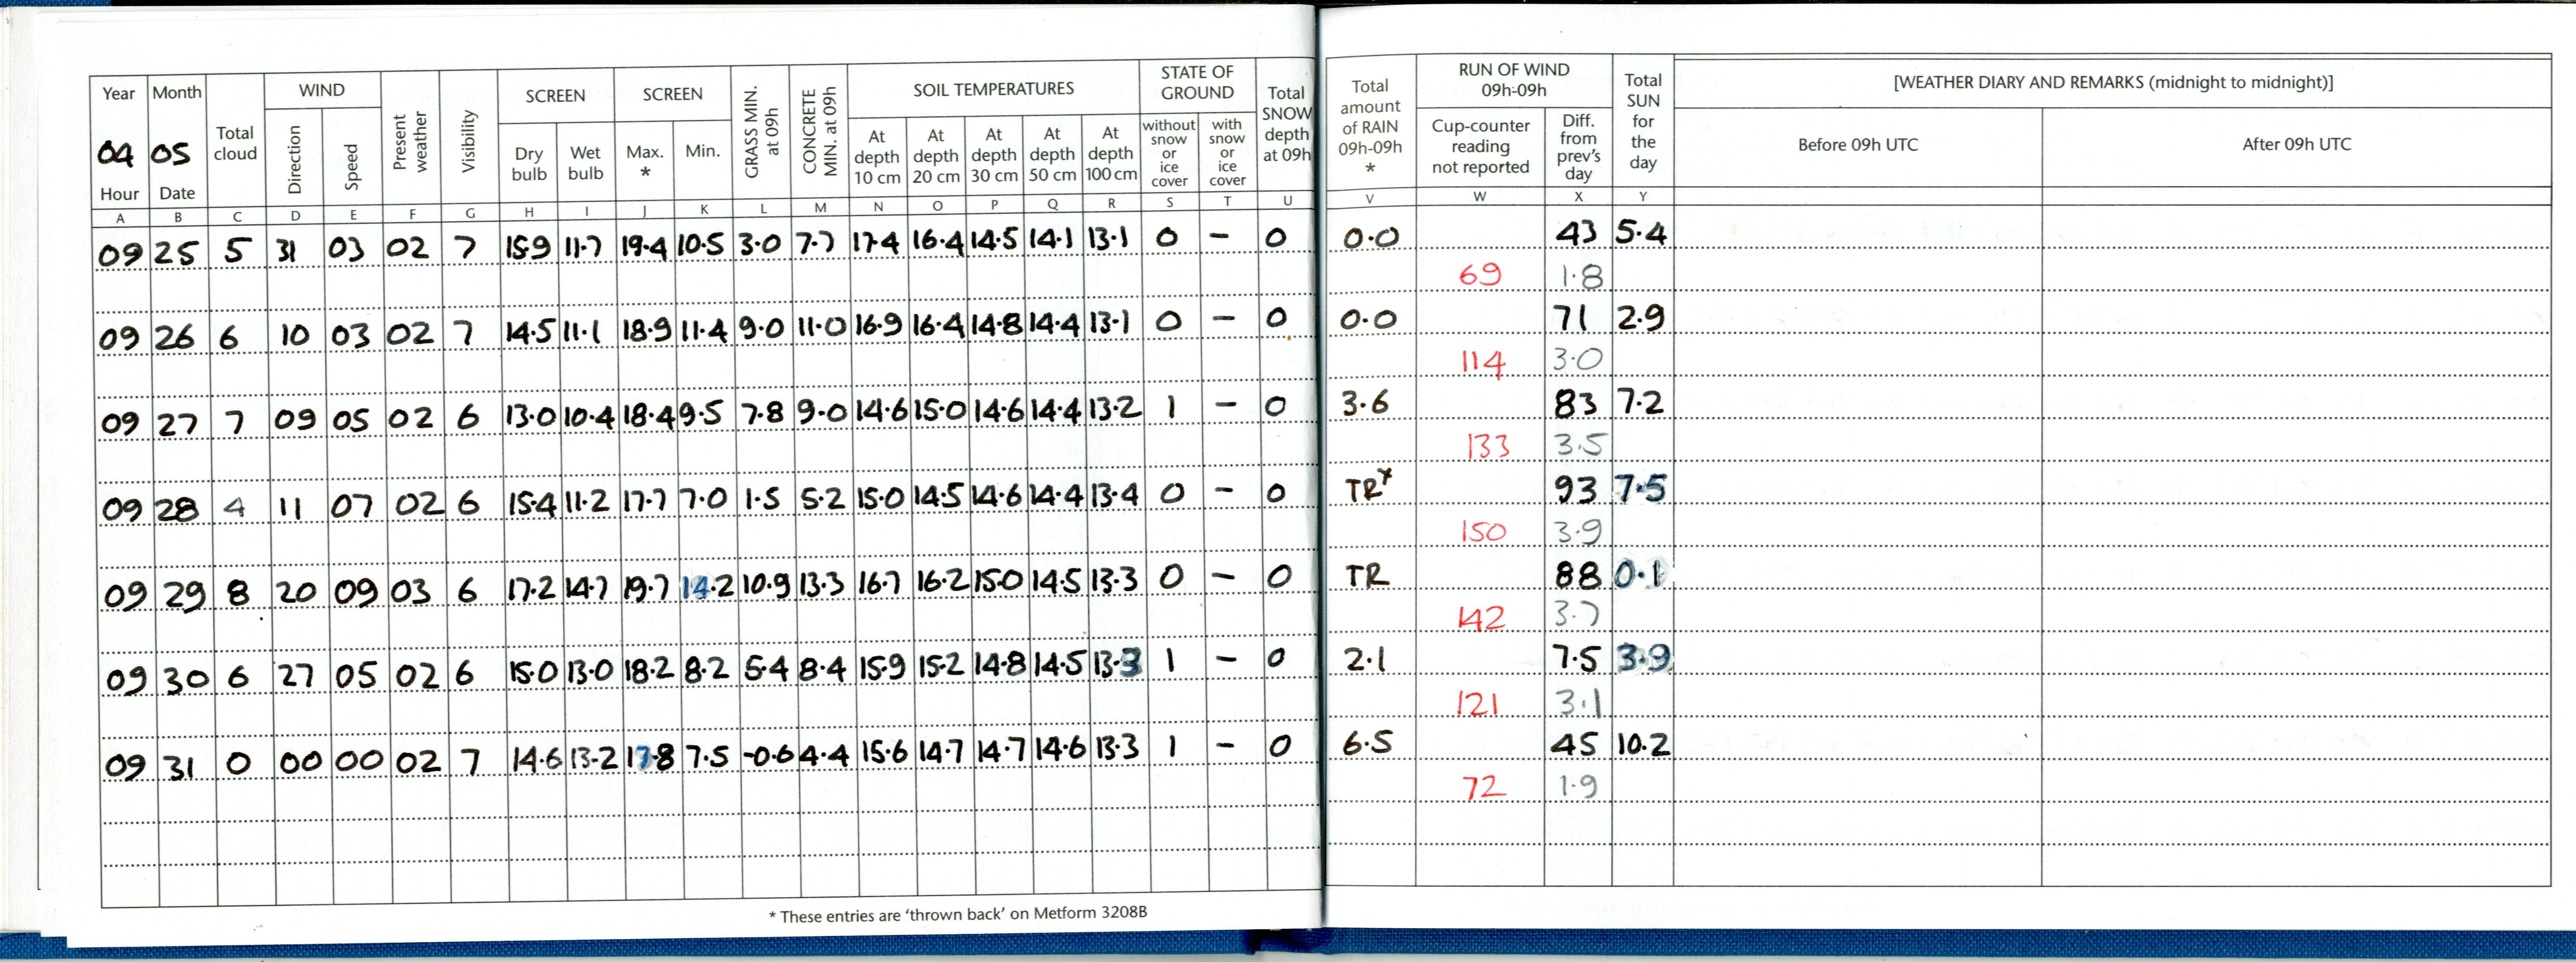 Year Month Total cloud WIND Present weather Visibility SCREEN SCREEN GRASS MIN. at 09h CONCRETE MIN. at 09h SOIL TEMPERATURES STATE OF GROUND Total SNOW depth at 09h Total amount of RAIN 09h-09h * RUN OF WIND 09h-09h Total SUN for the day [WEATHER DIARY AND REMARKS (midnight to midnight)]
04 05 Direction Speed Dry bulb Wet bulb Max. * Min. At depth 10 cm At depth 20 cm At depth 30 cm At depth 50 cm At depth 100 cm without snow or ice cover with snow or ice cover Cup-counter reading not reported Diff. from prev's day Before 09h UTC After 09h UTC
Hour Date
A B C D E F G H I J K L M N O P Q R S T U V W X Y
09 25 5 31 03 02 7 15.9 11.7 19.4 10.5 3.0 7.7 17.4 16.4 14.5 14.1 13.1 0 – 0 0.0 43 5.4
69 1.8
09 26 6 10 03 02 7 14.5 11.1 18.9 11.4 9.0 11.0 16.9 16.4 14.8 14.4 13.1 0 – 0 0.0 71 2.9
114 3.0
09 27 7 09 05 02 6 13.0 10.4 18.4 9.5 7.8 9.0 14.6 15.0 14.6 14.4 13.2 1 – 0 3.6 83 7.2
133 3.5
09 28 4 11 07 02 6 15.4 11.2 17.7 7.0 1.5 5.2 15.0 14.5 14.6 14.4 13.4 0 – 0 TR* 93 7.5
150 3.9
09 29 8 20 09 03 6 17.2 14.7 19.7 14.2 10.9 13.3 16.7 16.2 15.0 14.5 13.3 0 – 0 TR 88 0.1
142 3.7
09 30 6 27 05 02 6 15.0 13.0 18.2 8.2 5.4 8.4 15.9 15.2 14.8 14.5 13.3 1 – 0 2.1 7.5 3.9
121 3.1
09 31 0 00 00 02 7 14.6 13.2 17.8 7.5 -0.6 4.4 15.6 14.7 14.7 14.6 13.3 1 – 0 6.5 45 10.2
72 1.9
* These entries are ‘thrown back’ on Metform 3208B